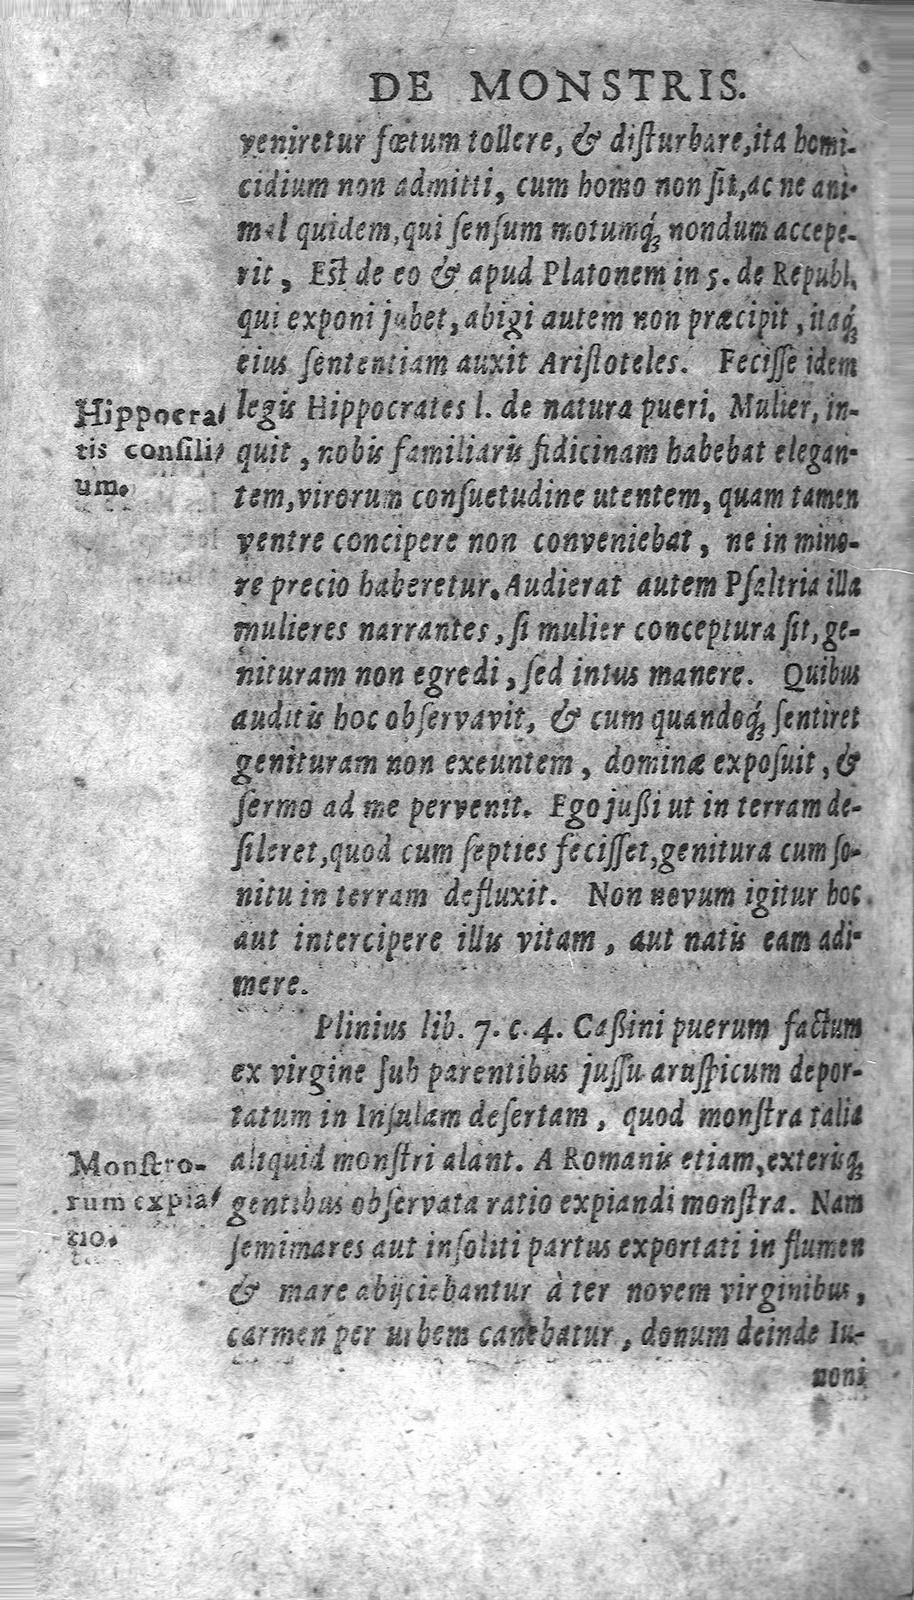 DE MONSTRIS.
veniretur fœtum tollere, & diſturbare, ita homi-
cidium non admitti, cum homo non ſit, ac ne ani-
mal quidem, qui ſenſum motumq́ꝫ nondum accepe-
rit, Eſt de eo & apud Platonem in 5. de Republ.
qui exponi jubet, abigi autem non præcipit, itaq́ꝫ
eius ſententiam auxit Ariſtoteles. Feciſſe idem
legis Hippocrates l. de natura pueri. Mulier, in-
quit, nobis familiaris fidicinam habebat elegan-
tem, virorum conſuetudine utentem, quam tamen
ventre concipere non conveniebat, ne in mino-
re precio haberetur. Audierat autem Pſaltria illa
mulieres narrantes, ſi mulier conceptura ſit, ge-
nituram non egredi, ſed intus manere. Quibus
auditis hoc obſervavit, & cum quandoq́ꝫ ſentiret
genituram non exeuntem, dominæ expoſuit, &
ſermo ad me pervenit. Ego jußi ut in terram de-
ſileret, quod cum ſepties feciſſet, genitura cum ſo-
nitu in terram defluxit. Non novum igitur hoc
aut intercipere illis vitam, aut natis eam adi-
mere.
Plinius lib. 7. c. 4. Caßini puerum factum
ex virgine ſub parentibus juſſu aruſpicum depor-
tatum in Inſulam deſertam, quod monſtra talia
aliquid monſtri alant. A Romanis etiam, exterisqꝫ
gentibus obſervata ratio expiandi monſtra. Nam
ſemimares aut inſoliti partus exportati in flumen
& mare abijciebantur à ter novem virginibus,
carmen per urbem canebatur, donum deinde Iu-
noni
Hippocra-
tis conſili-
um.
Monſtro-
rum expia-
tio.